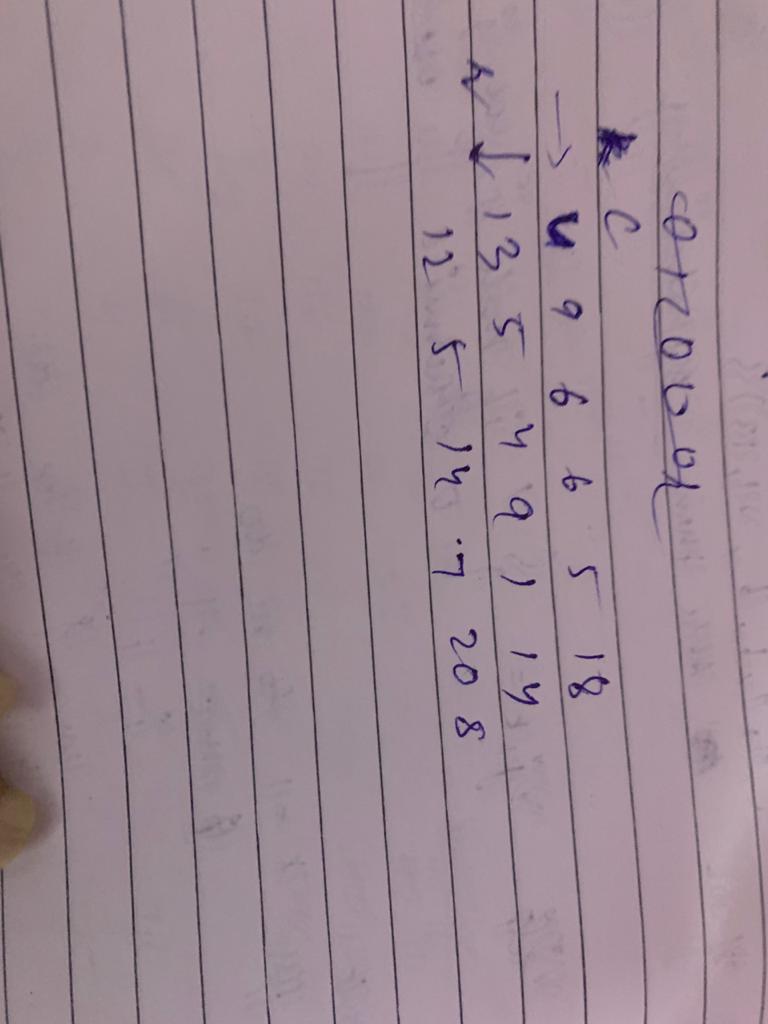 C
→ 4 9 6 6 5 18
↓ 13 5 4 9 1 14
12 5 14 7 20 8